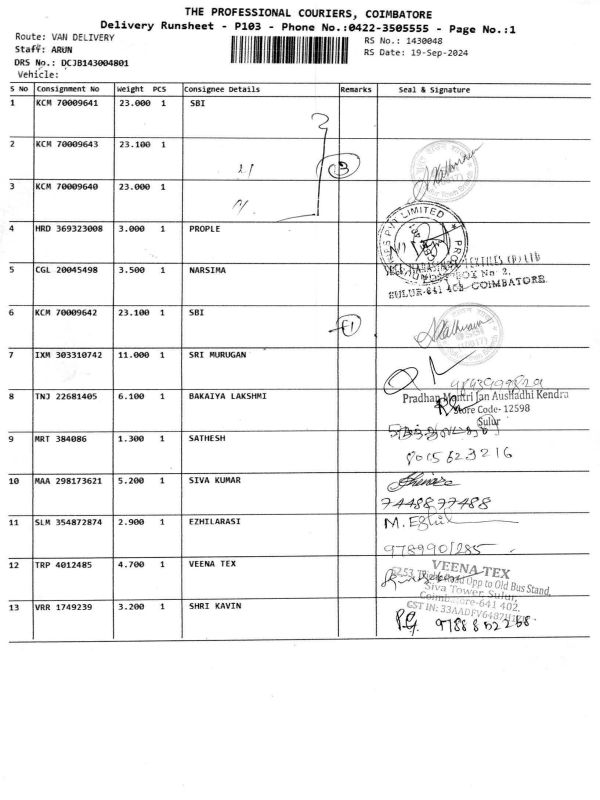 THE PROFESSIONAL COURIERS, COIMBATORE
Delivery Runsheet - P103 - Phone No.:0422-3505555 - Page No.:1
Route: VAN DELIVERY
RS No.: 1430048
Staff: ARUN
RS Date: 19-Sep-2024
DRS No.: DCJB143004801
Vehicle:
S No Consignment No Weight PCS Consignee Details Remarks Seal & Signature
1 KCM 70009641 23.000 1 SBI
2 KCM 70009643 23.100 1
3 KCM 70009640 23.000 1
4 HRD 369323008 3.000 1 PROPLE
LIMITED
5 CGL 20045498 3.500 1 NARSIMA
POST BOX No 2,
SULUR-641 402 COIMBATORE
6 KCM 70009642 23.100 1 SBI
7 IXM 303310742 11.000 1 SRI MURUGAN
8 TNJ 22681405 6.100 1 BAKAIYA LAKSHMI
Pradhan Mantri Jan Aushadhi Kendra
Store Code- 12598
Sulur
9 MRT 384086 1.300 1 SATHESH
8015623216
10 MAA 298173621 5.200 1 SIVA KUMAR
7448877488
11 SLM 354872874 2.900 1 EZHILARASI
M. Ezhil
9789901285
12 TRP 4012485 4.700 1 VEENA TEX
VEENA TEX
Opp to Old Bus Stand,
Siva Tower, Sulur,
Coimbatore-641 402.
13 VRR 1749239 3.200 1 SHRI KAVIN
9788852258